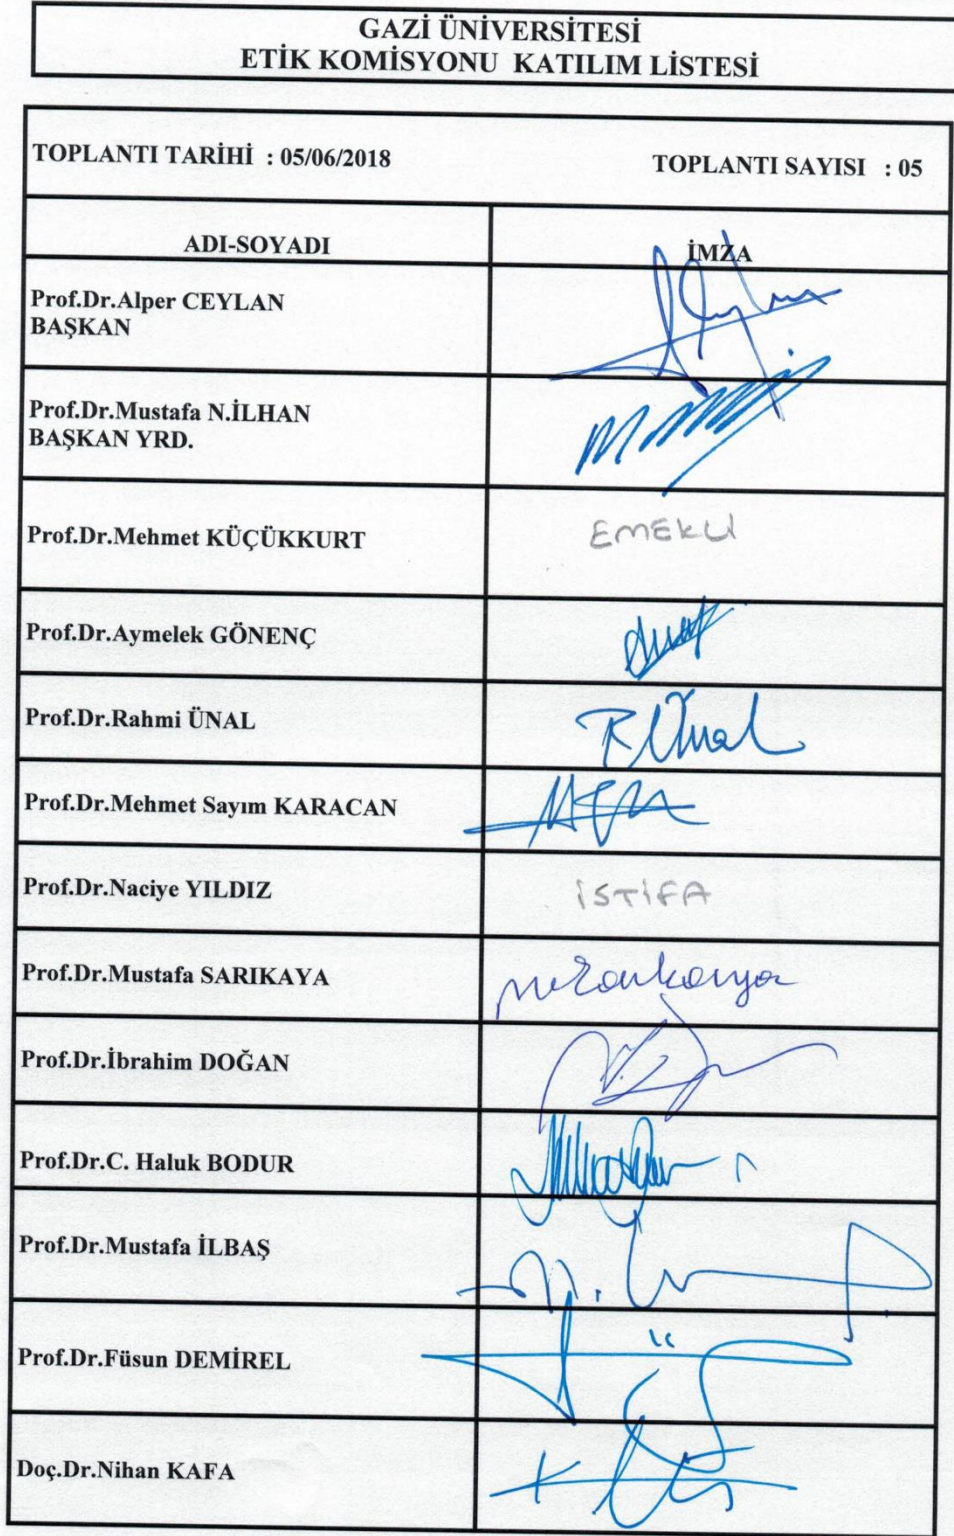 GAZİ ÜNİVERSİTESİ
ETİK KOMİSYONU KATILIM LİSTESİ
TOPLANTI TARİHİ : 05/06/2018 TOPLANTI SAYISI : 05
ADI-SOYADI İMZA
Prof.Dr.Alper CEYLAN
BAŞKAN
Prof.Dr.Mustafa N.İLHAN
BAŞKAN YRD.
Prof.Dr.Mehmet KÜÇÜKKURT EMEKLİ
Prof.Dr.Aymelek GÖNENÇ
Prof.Dr.Rahmi ÜNAL R Ünal
Prof.Dr.Mehmet Sayım KARACAN
Prof.Dr.Naciye YILDIZ İSTİFA
Prof.Dr.Mustafa SARIKAYA
Prof.Dr.İbrahim DOĞAN
Prof.Dr.C. Haluk BODUR
Prof.Dr.Mustafa İLBAŞ
Prof.Dr.Füsun DEMİREL
Doç.Dr.Nihan KAFA